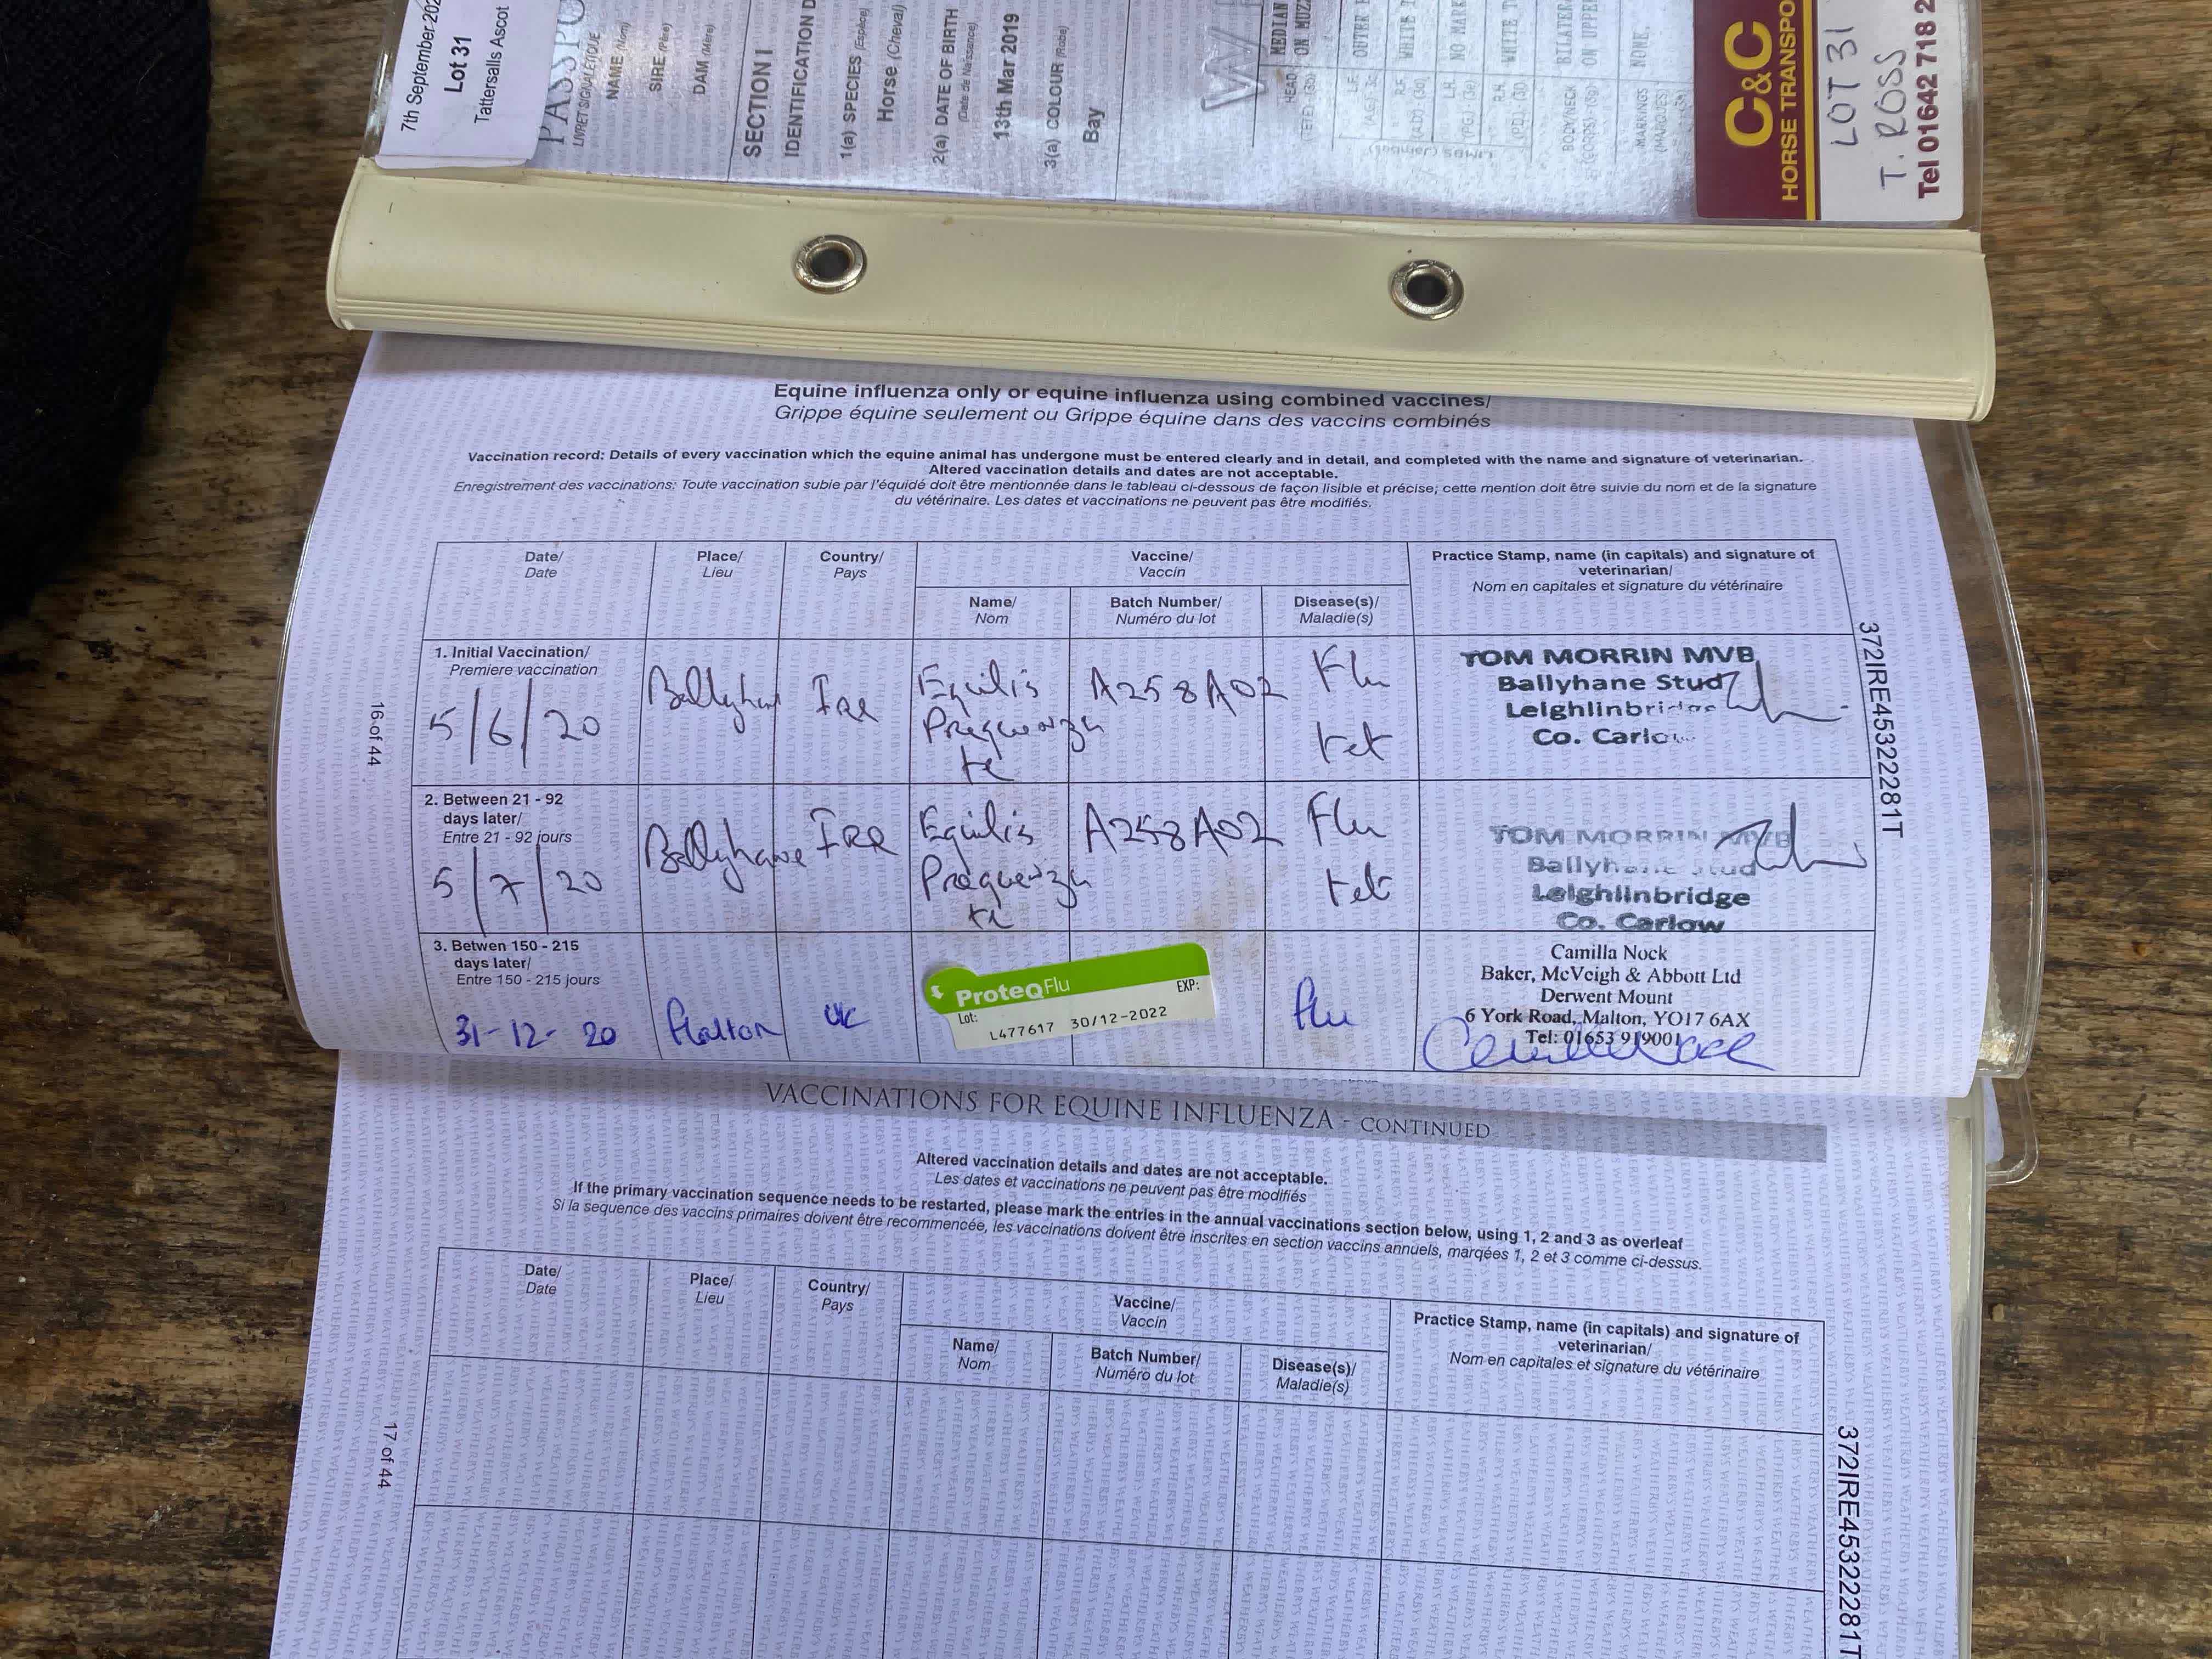 7th September 202
Lot 31
Tattersalls Ascot
PASSPO
LIVRET SIGNALÉTIQUE
NAME (Nom)
SIRE (Père)
DAM (Mère)
SECTION I
IDENTIFICATION D
1(a) SPECIES (Espèce)
Horse (Cheval)
2(a) DATE OF BIRTH
(Date de Naissance)
13th Mar 2019
3(a) COLOUR (Robe)
Bay
W
HEAD
(TETE) (3b)
MEDIAN
ON MUZ
LIMBS (Membres)
L.F.
(AG) 3c
OUTER
R.F.
(AD) (3d)
WHITE T
L.H.
(PG) (3e)
NO MARK
R.H.
(PD) (3f)
WHITE T
BODY/NECK
(CORPS) (3g)
BILATER
ON UPPE
MARKINGS
(MARQUES)
NONE.
C&C
HORSE TRANSPO
LOT 31
T. ROSS
Tel 01642 718 2
Equine influenza only or equine influenza using combined vaccines/
Grippe équine seulement ou Grippe équine dans des vaccins combinés
Vaccination record: Details of every vaccination which the equine animal has undergone must be entered clearly and in detail, and completed with the name and signature of veterinarian.
Altered vaccination details and dates are not acceptable.
Enregistrement des vaccinations: Toute vaccination subie par l'équidé doit être mentionnée dans le tableau ci-dessous de façon lisible et précise; cette mention doit être suivie du nom et de la signature
du vétérinaire. Les dates et vaccinations ne peuvent pas être modifiés.
Date/
Date
Place/
Lieu
Country/
Pays
Vaccine/
Vaccin
Name/
Nom
Batch Number/
Numéro du lot
Disease(s)/
Maladie(s)
Practice Stamp, name (in capitals) and signature of
veterinarian/
Nom en capitales et signature du vétérinaire
1. Initial Vaccination/
Premiere vaccination
5/6/20
Ballyhane
IRE
Equilis
Prequenza
te
A258A02
Flu
tet
TOM MORRIN MVB
Ballyhane Stud
Leighlinbridge
Co. Carlow
2. Between 21 - 92
days later/
Entre 21 - 92 jours
5/7/20
Ballyhane
IRE
Equilis
Prequenza
te
A258A02
Flu
tet
TOM MORRIN MVB
Ballyhane Stud
Leighlinbridge
Co. Carlow
3. Betwen 150 - 215
days later/
Entre 150 - 215 jours
31-12-20
Malton
UK
ProteqFlu
Lot:
EXP:
L477617 30/12-2022
flu
Camilla Nock
Baker, McVeigh & Abbott Ltd
Derwent Mount
6 York Road, Malton, YO17 6AX
Tel: 01653 919001
16 of 44
372IRE45322281T
VACCINATIONS FOR EQUINE INFLUENZA - CONTINUED
Altered vaccination details and dates are not acceptable.
Les dates et vaccinations ne peuvent pas être modifiés
If the primary vaccination sequence needs to be restarted, please mark the entries in the annual vaccinations section below, using 1, 2 and 3 as overleaf
Si la sequence des vaccins primaires doivent être recommencée, les vaccinations doivent être inscrites en section vaccins annuels, marqées 1, 2 et 3 comme ci-dessus.
Date/
Date
Place/
Lieu
Country/
Pays
Vaccine/
Vaccin
Name/
Nom
Batch Number/
Numéro du lot
Disease(s)/
Maladie(s)
Practice Stamp, name (in capitals) and signature of
veterinarian/
Nom en capitales et signature du vétérinaire
17 of 44
372IRE45322281T